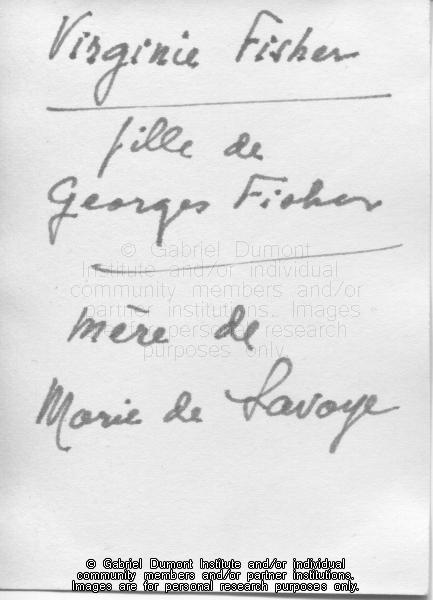 Virginie Fisher
fille de
Georges Fisher
mère de
Marie de Savoye
© Gabriel Dumont
Institute and/or individual
community members and/or
partner institutions. Images
are for personal research
purposes only.
© Gabriel Dumont Institute and/or individual
community members and/or partner institutions.
Images are for personal research purposes only.